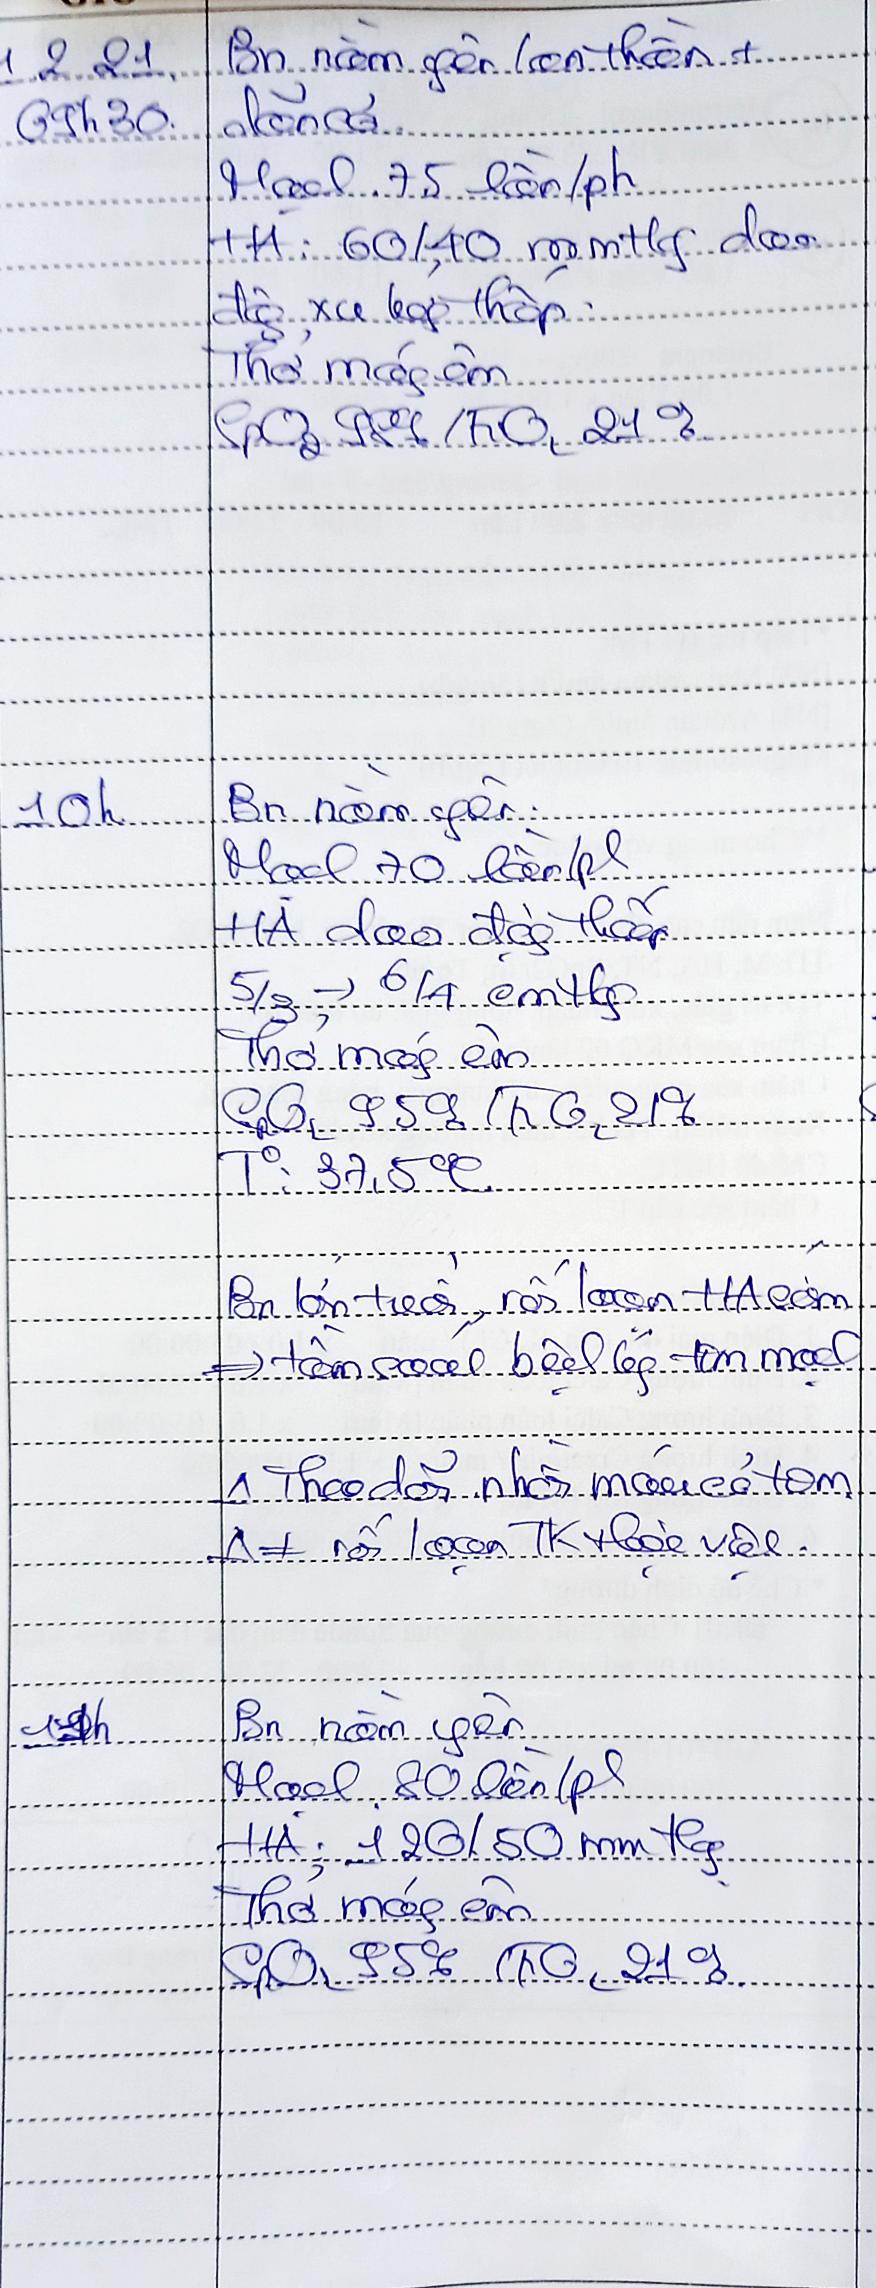 1 2 21 Bn nằm yên
09h30.
Mạch 75 lần/ph
HA: 60/40 mmHg dao
động, xu hướng thấp.
Thở máy êm
SpO2 98% / FiO2 21%
10h Bn nằm yên.
Mạch 70 lần/ph
HA dao động thấp
5/3 → 6/4 cmHg
Thở máy êm
SpO2 95% / FiO2 21%
T°: 37,5°C
Bn lớn tuổi, rối loạn HA sớm
=> tầm soát bệnh lý tim mạch
Δ Theo dõi nhồi máu cơ tim
Δ≠ rối loạn TK thực vật.
Bn nằm yên
Mạch 80 lần/ph
HA: 120/50 mmHg
Thở máy êm
SpO2 95% / FiO2 21%